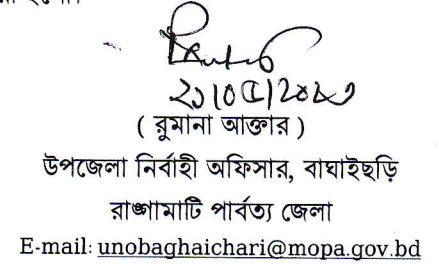 ২১/০৫/২০২৩
( রুমানা আক্তার )
উপজেলা নির্বাহী অফিসার, বাঘাইছড়ি
রাঙ্গামাটি পার্বত্য জেলা
E-mail: unobaghaichari@mopa.gov.bd